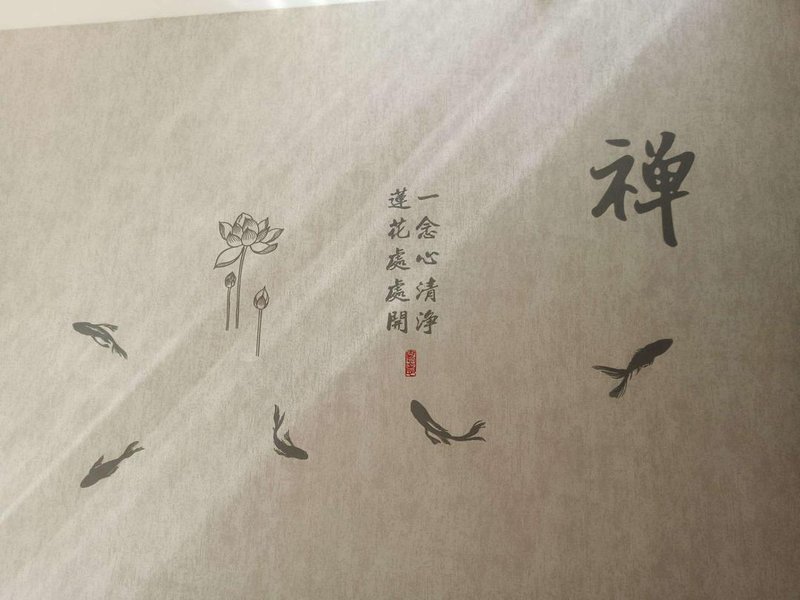 禅
一念心清浄
蓮花處處開